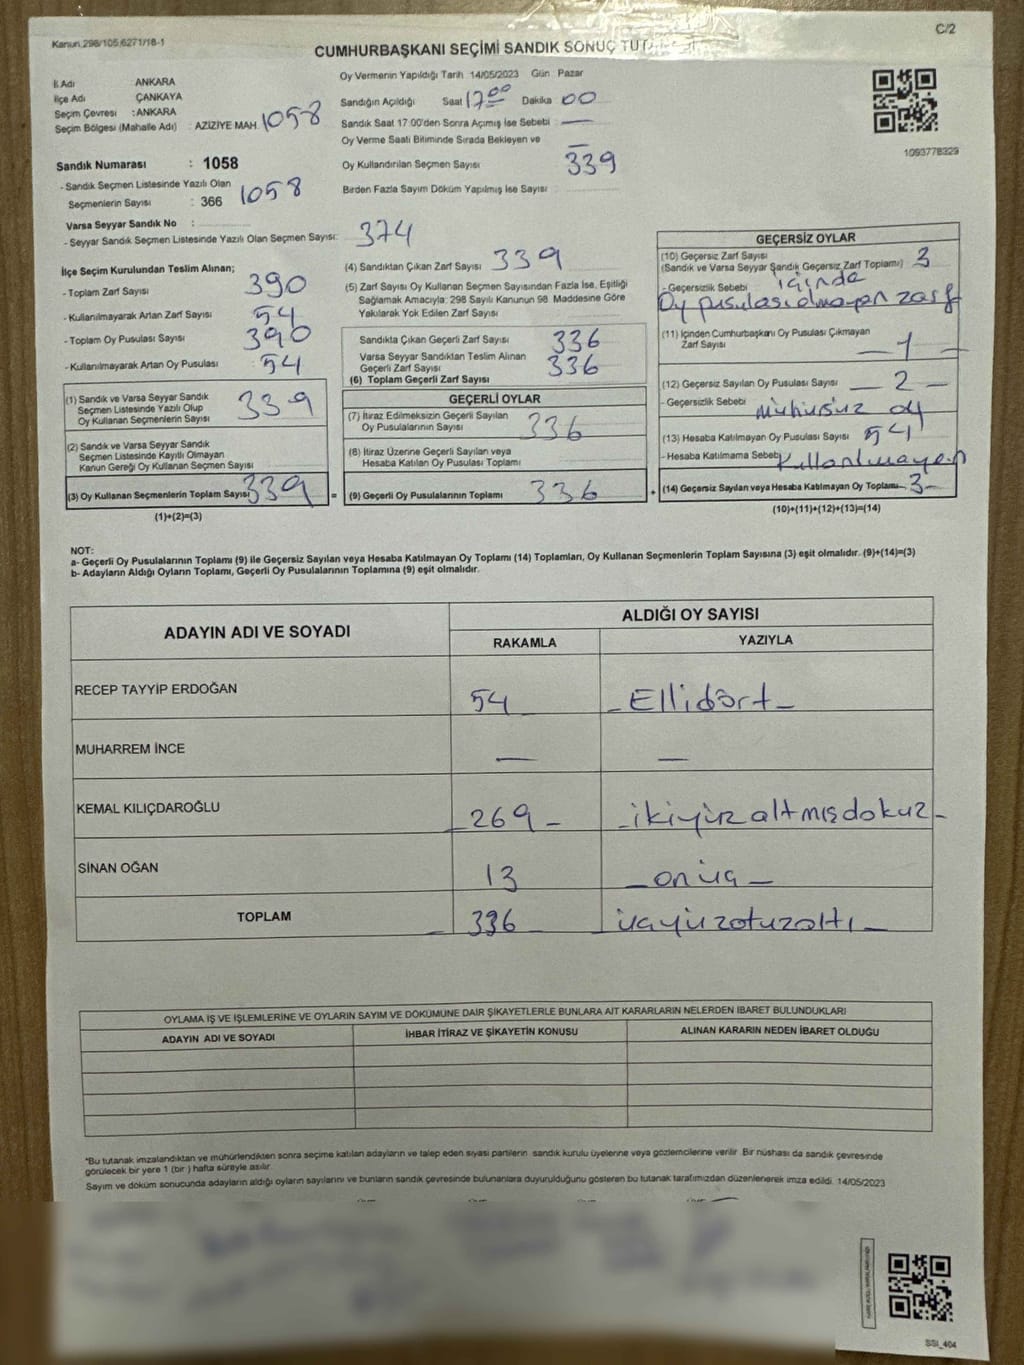 Kanun 298/105,6271/18-1
C/2
CUMHURBAŞKANI SEÇİMİ SANDIK SONUÇ
İl Adı ANKARA
İlçe Adı ÇANKAYA
Seçim Çevresi : ANKARA
Seçim Bölgesi (Mahalle Adı) : AZİZİYE MAH. 1058
Sandık Numarası : 1058
- Sandık Seçmen Listesinde Yazılı Olan
Seçmenlerin Sayısı : 366 1058
Varsa Seyyar Sandık No :
- Seyyar Sandık Seçmen Listesinde Yazılı Olan Seçmen Sayısı: 374
Oy Vermenin Yapıldığı Tarih 14/05/2023 Gün : Pazar
Sandığın Açıldığı Saat 17:00 Dakika 00
Sandık Saat 17:00'den Sonra Açımış İse Sebebi : —
Oy Verme Saati Bitiminde Sırada Bekleyen ve
Oy Kullandırılan Seçmen Sayısı 339
Birden Fazla Sayım Döküm Yapılmış İse Sayısı :
1093778329
İlçe Seçim Kurulundan Teslim Alınan;
- Toplam Zarf Sayısı 390
- Kullanılmayarak Artan Zarf Sayısı 54
- Toplam Oy Pusulası Sayısı 390
- Kullanılmayarak Artan Oy Pusulası : 54
(1) Sandık ve Varsa Seyyar Sandık
Seçmen Listesinde Yazılı Olup
Oy Kullanan Seçmenlerin Sayısı 339
(2) Sandık ve Varsa Seyyar Sandık
Seçmen Listesinde Kayıtlı Olmayan
Kanun Gereği Oy Kullanan Seçmen Sayısı
(3) Oy Kullanan Seçmenlerin Toplam Sayısı 339
(1)+(2)=(3)
(4) Sandıktan Çıkan Zarf Sayısı 339
(5) Zarf Sayısı Oy Kullanan Seçmen Sayısından Fazla İse, Eşitliği
Sağlamak Amacıyla; 298 Sayılı Kanunun 98. Maddesine Göre
Yakılarak Yok Edilen Zarf Sayısı
Sandıkta Çıkan Geçerli Zarf Sayısı 336
Varsa Seyyar Sandıktan Teslim Alınan
Geçerli Zarf Sayısı 336
(6) Toplam Geçerli Zarf Sayısı
GEÇERLİ OYLAR
(7) İtiraz Edilmeksizin Geçerli Sayılan
Oy Pusulalarının Sayısı 336
(8) İtiraz Üzerine Geçerli Sayılan veya
Hesaba Katılan Oy Pusulası Toplamı
= (9) Geçerli Oy Pusulalarının Toplamı 336 +
GEÇERSİZ OYLAR
(10) Geçersiz Zarf Sayısı
(Sandık ve Varsa Seyyar Sandık Geçersiz Zarf Toplamı) 3
- Geçersizlik Sebebi içinde
Oy pusulası olmayan zarf
(11) İçinden Cumhurbaşkanı Oy Pusulası Çıkmayan
Zarf Sayısı — 1 —
(12) Geçersiz Sayılan Oy Pusulası Sayısı — 2 —
- Geçersizlik Sebebi mühürsüz oy
(13) Hesaba Katılmayan Oy Pusulası Sayısı 54
- Hesaba Katılmama Sebebi Kullanılmayan
(14) Geçersiz Sayılan veya Hesaba Katılmayan Oy Toplamı - 3 -
(10)+(11)+(12)+(13)=(14)
NOT:
a- Geçerli Oy Pusulalarının Toplamı (9) ile Geçersiz Sayılan veya Hesaba Katılmayan Oy Toplamı (14) Toplamları, Oy Kullanan Seçmenlerin Toplam Sayısına (3) eşit olmalıdır. (9)+(14)=(3)
b- Adayların Aldığı Oyların Toplamı, Geçerli Oy Pusulalarının Toplamına (9) eşit olmalıdır.
ADAYIN ADI VE SOYADI ALDIĞI OY SAYISI
RAKAMLA YAZIYLA
RECEP TAYYİP ERDOĞAN 54 - Ellidört -
MUHARREM İNCE — —
KEMAL KILIÇDAROĞLU - 269 - - ikiyüz altmışdokuz -
SİNAN OĞAN 13 - onüç -
TOPLAM - 336 - - üçyüzotuzaltı -
OYLAMA İŞ VE İŞLEMLERİNE VE OYLARIN SAYIM VE DÖKÜMÜNE DAİR ŞİKAYETLERLE BUNLARA AİT KARARLARIN NELERDEN İBARET BULUNDUKLARI
ADAYIN ADI VE SOYADI İHBAR İTİRAZ VE ŞİKAYETİN KONUSU ALINAN KARARIN NEDEN İBARET OLDUĞU
*Bu tutanak imzalandıktan ve mühürlendikten sonra seçime katılan adayların ve talep eden siyasi partilerin sandık kurulu üyelerine veya gözlemcilerine verilir. Bir nüshası da sandık çevresinde
görülecek bir yere 1 (bir ) hafta süreyle asılır.
Sayım ve döküm sonucunda adayların aldığı oyların sayılarını ve bunların sandık çevresinde bulunanlara duyurulduğunu gösteren bu tutanak tarafımızdan düzenlenerek imza edildi. 14/05/2023
SSI_404